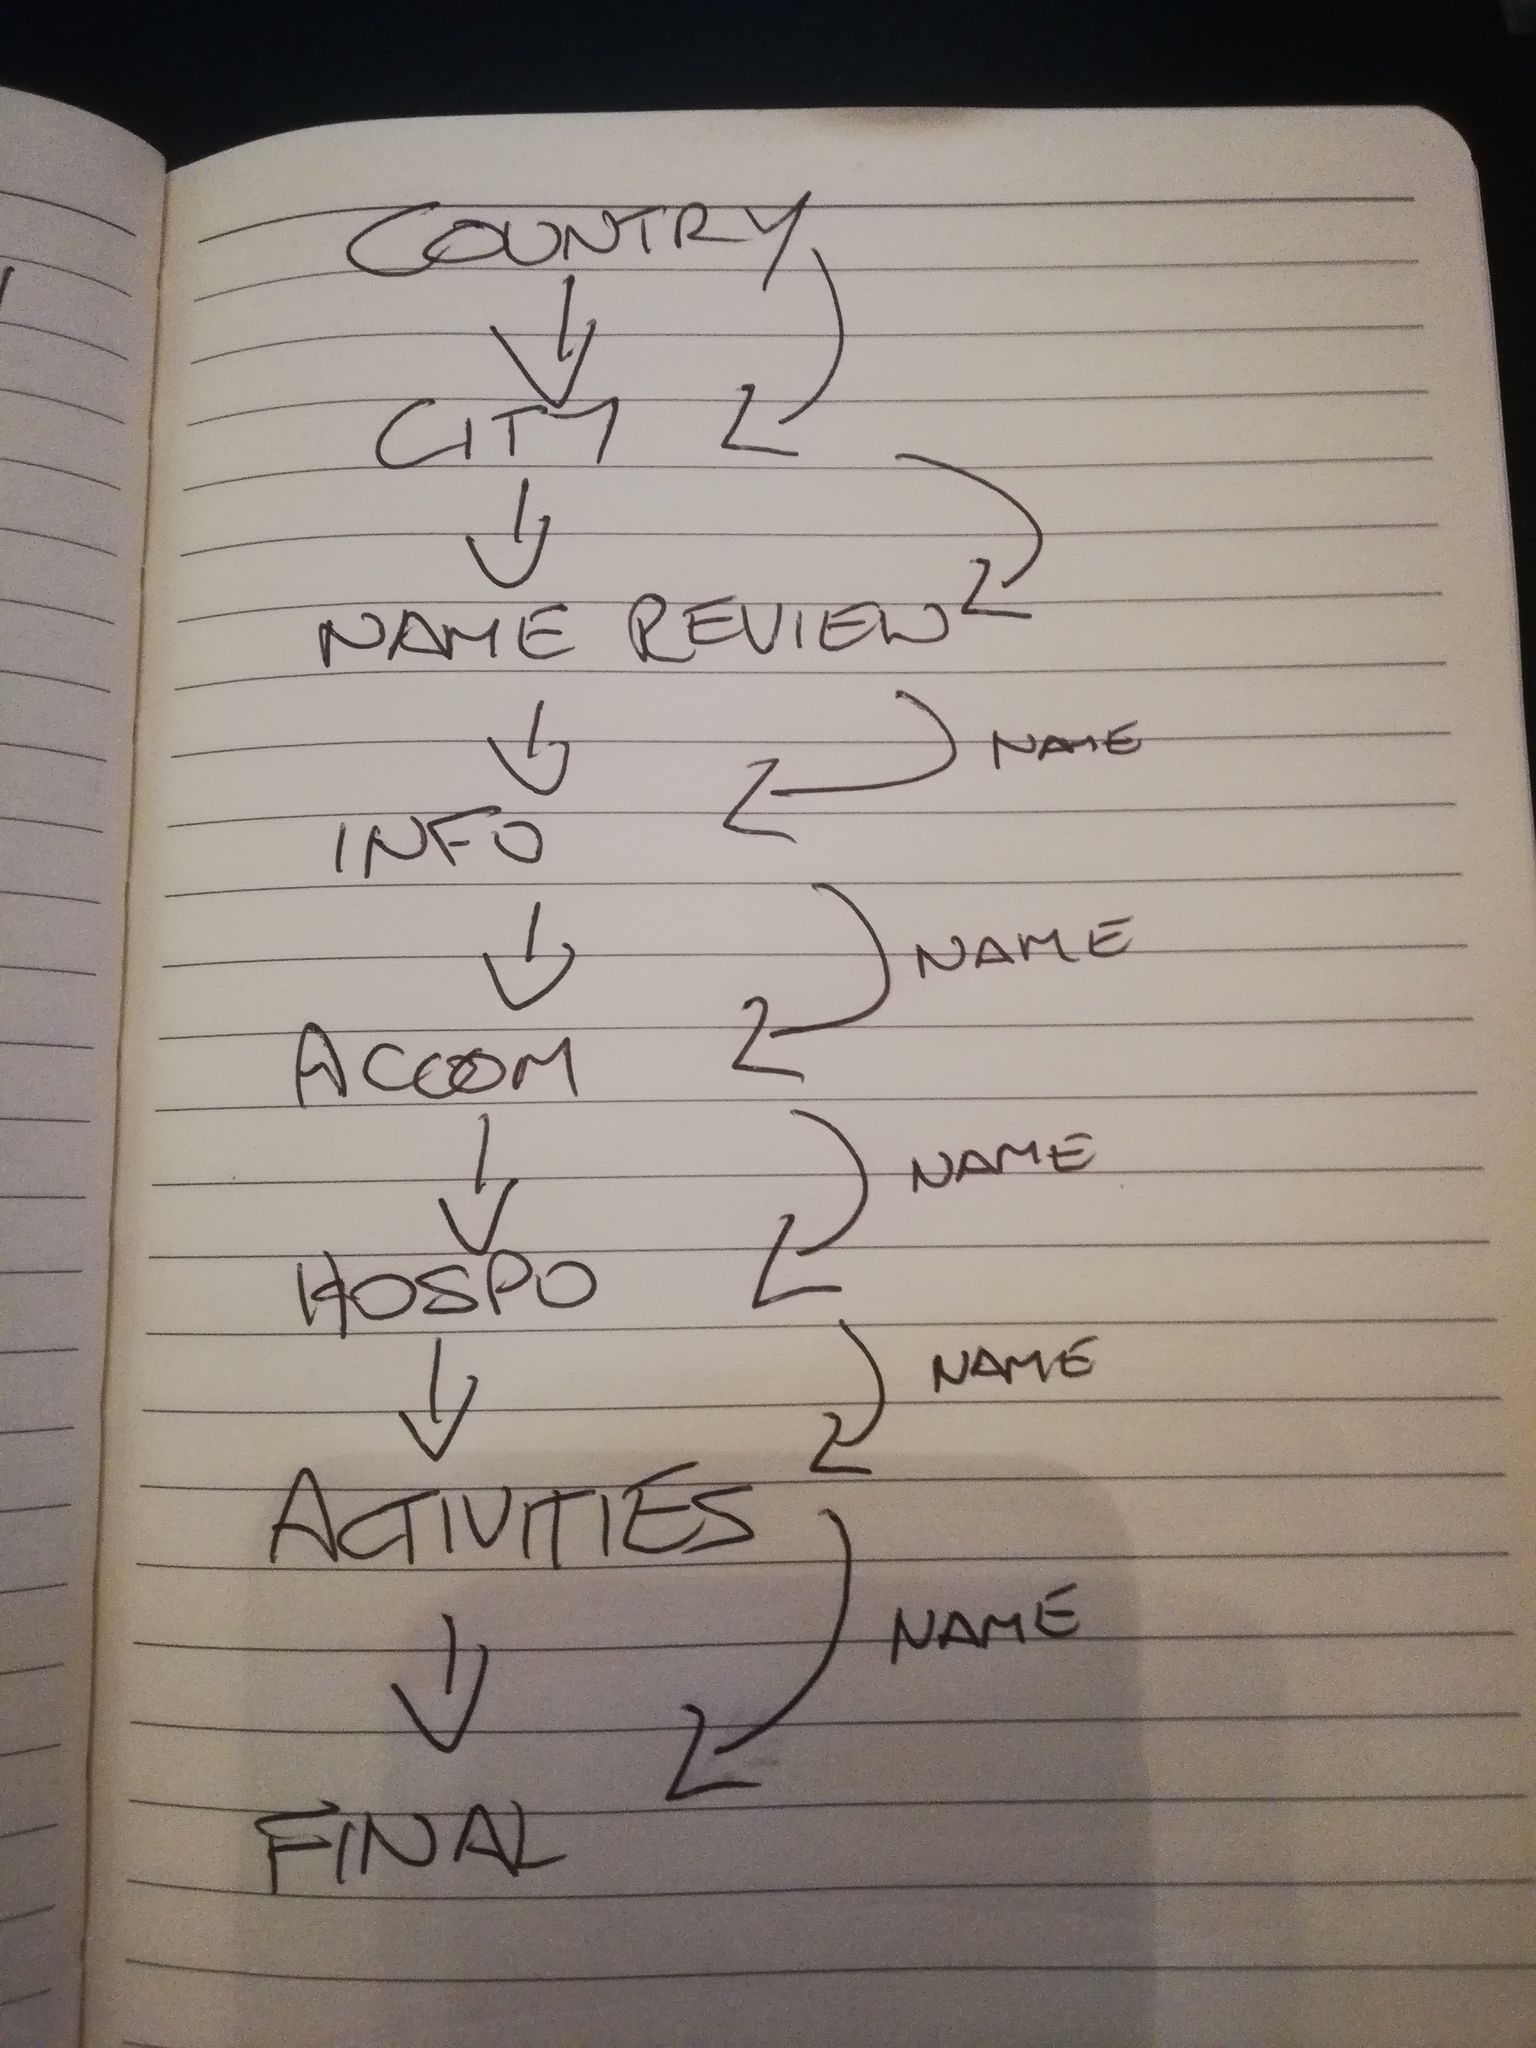 COUNTRY
CITY
NAME REVIEW
NAME
INFO
NAME
ACCOM
NAME
HOSPO
NAME
ACTIVITIES
NAME
FINAL